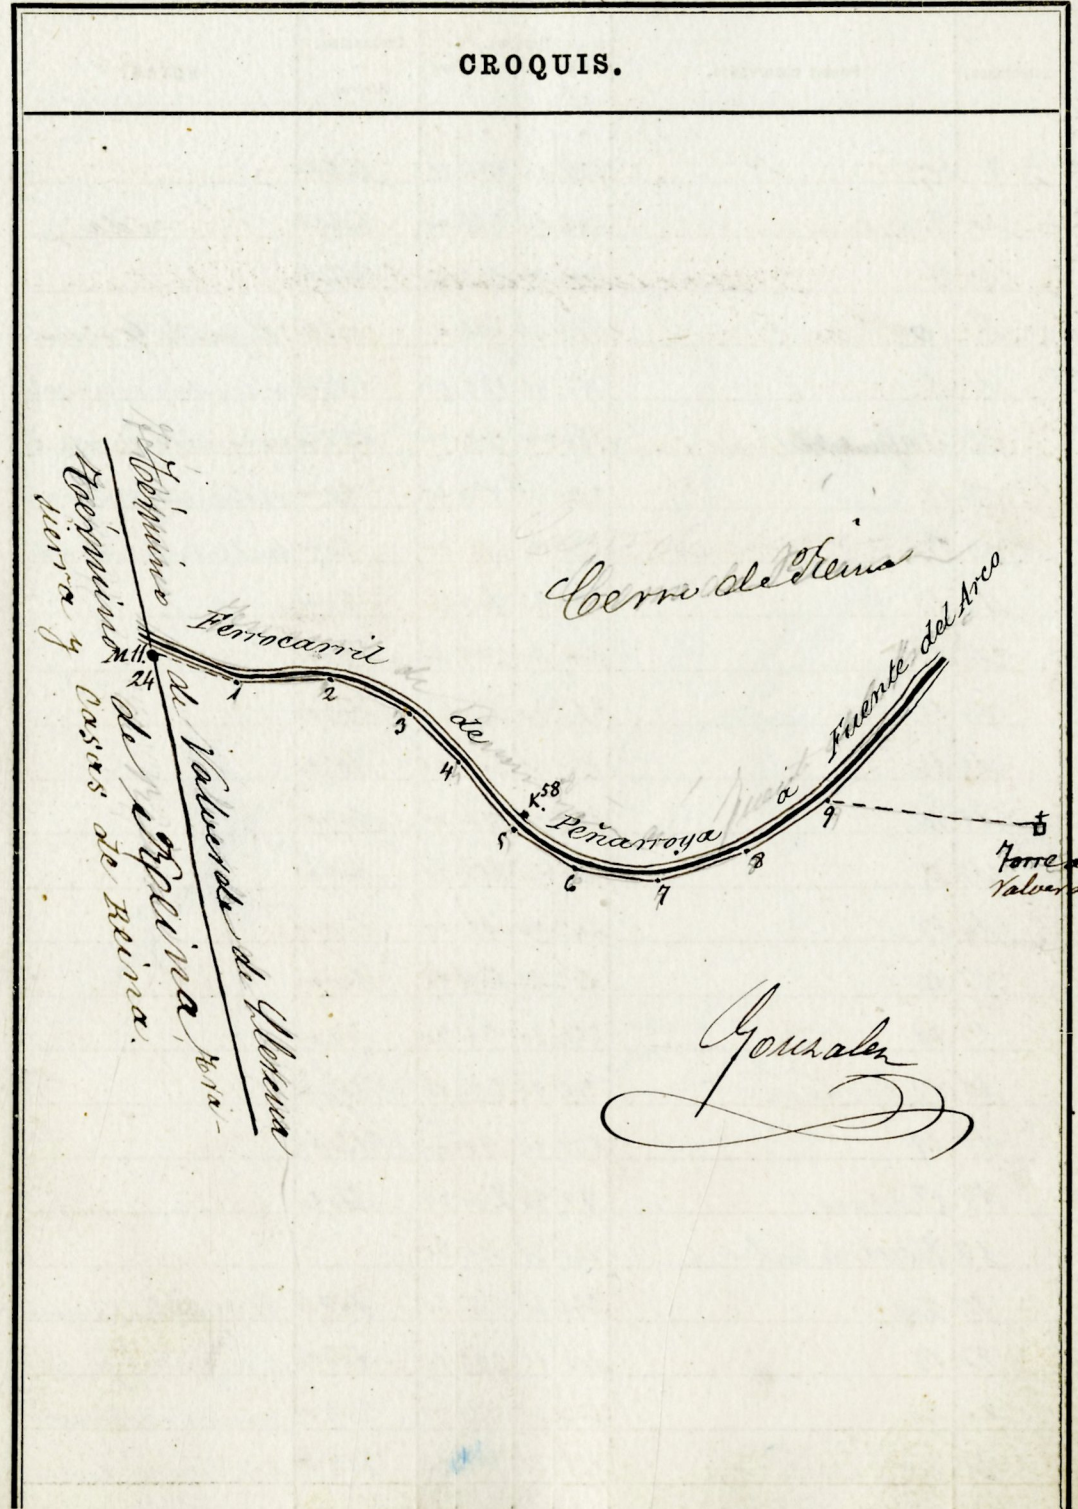 CROQUIS.
Término de Valverde de Llerena
Término de Reina, Tra-
sierra y Casas de Reina.
Cerro de Reina
Ferrocarril de Peñarroya á Fuente del Arco
M 11.
24
1
2
3
4
K. 58
5
6
7
8
9
Torre
Valver
Gonzalez